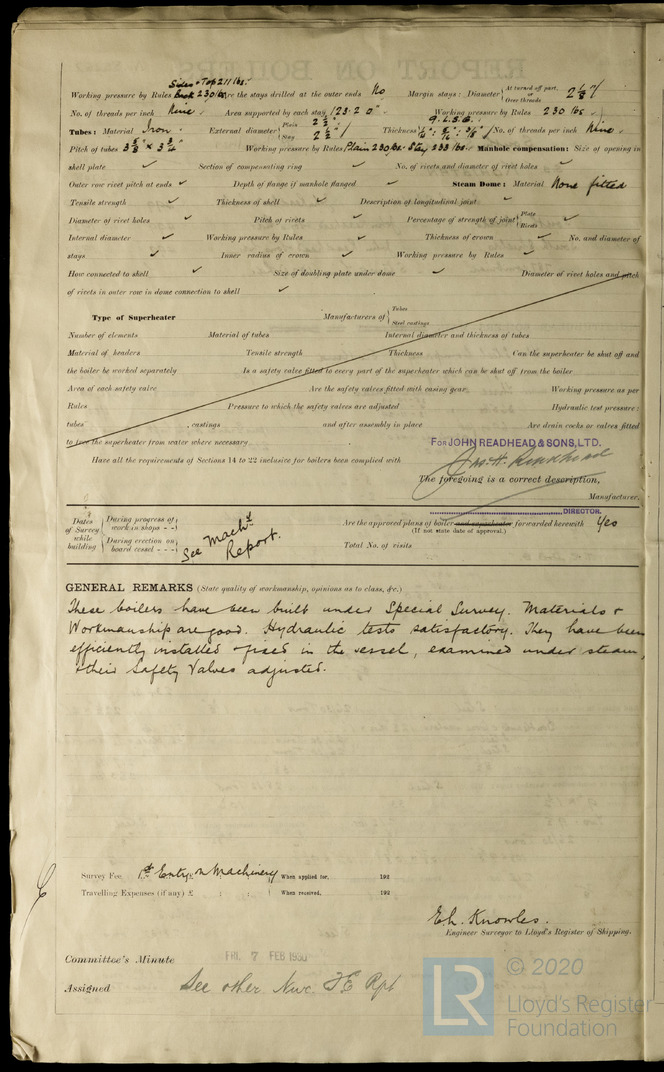 Sides & Top 211 lbs.
Working pressure by Rules Back 230 lbs Are the stays drilled at the outer ends No Margin stays: Diameter { At turned off part, or Over threads 2 1/8"
No. of threads per inch Nine. Area supported by each stay 123.20" Working pressure by Rules 230 lbs.
Tubes: Material Iron. External diameter { Plain 2 1/2" Stay 2 1/2" Thickness 9. L.S.G. No. of threads per inch Nine.
Pitch of tubes 3 5/8 x 3 3/4" Working pressure by Rules Plain 230 lbs. Stay 233 lbs. Manhole compensation: Size of opening in
shell plate ✓ Section of compensating ring ✓ No. of rivets and diameter of rivet holes ✓
Outer row rivet pitch at ends ✓ Depth of flange if manhole flanged ✓ Steam Dome: Material None fitted
Tensile strength ✓ Thickness of shell ✓ Description of longitudinal joint ✓
Diameter of rivet holes ✓ Pitch of rivets ✓ Percentage of strength of joint { Plate Rivets ✓
Internal diameter ✓ Working pressure by Rules ✓ Thickness of crown ✓ No. and diameter of
stays ✓ Inner radius of crown ✓ Working pressure by Rules ✓
How connected to shell ✓ Size of doubling plate under dome ✓ Diameter of rivet holes and pitch
of rivets in outer row in dome connection to shell ✓
Type of Superheater Manufacturers of { Tubes Steel castings
Number of elements Material of tubes Internal diameter and thickness of tubes
Material of headers Tensile strength Thickness Can the superheater be shut off and
the boiler be worked separately Is a safety valve fitted to every part of the superheater which can be shut off from the boiler
Area of each safety valve Are the safety valves fitted with easing gear Working pressure as per
Rules Pressure to which the safety valves are adjusted Hydraulic test pressure:
tubes , castings and after assembly in place Are drain cocks or valves fitted
to free the superheater from water where necessary
FOR JOHN READHEAD & SONS, LTD.
Have all the requirements of Sections 14 to 22 inclusive for boilers been complied with
Readhead
The foregoing is a correct description,
Manufacturer.
DIRECTOR.
Dates of Survey while building { During progress of work in shops - - During erection on board vessel - - -
See Machy Report.
Are the approved plans of boiler and superheater forwarded herewith Yes
(If not state date of approval.)
Total No. of visits
GENERAL REMARKS (State quality of workmanship, opinions as to class, &c.)
These boilers have been built under Special Survey. Materials &
Workmanship are good. Hydraulic tests satisfactory. They have been
efficiently installed & fixed in the vessel, examined under steam,
& their Safety Valves adjusted.
Survey Fee 1st Entry on Machinery When applied for, 192
Travelling Expenses (if any) £ : : When received, 192
Eh. Knowles.
Engineer Surveyor to Lloyd's Register of Shipping.
Committee's Minute FRI. 7 FEB 1930
Assigned See other Nwc. F E Rpt
LR © 2020
Lloyd's Register
Foundation